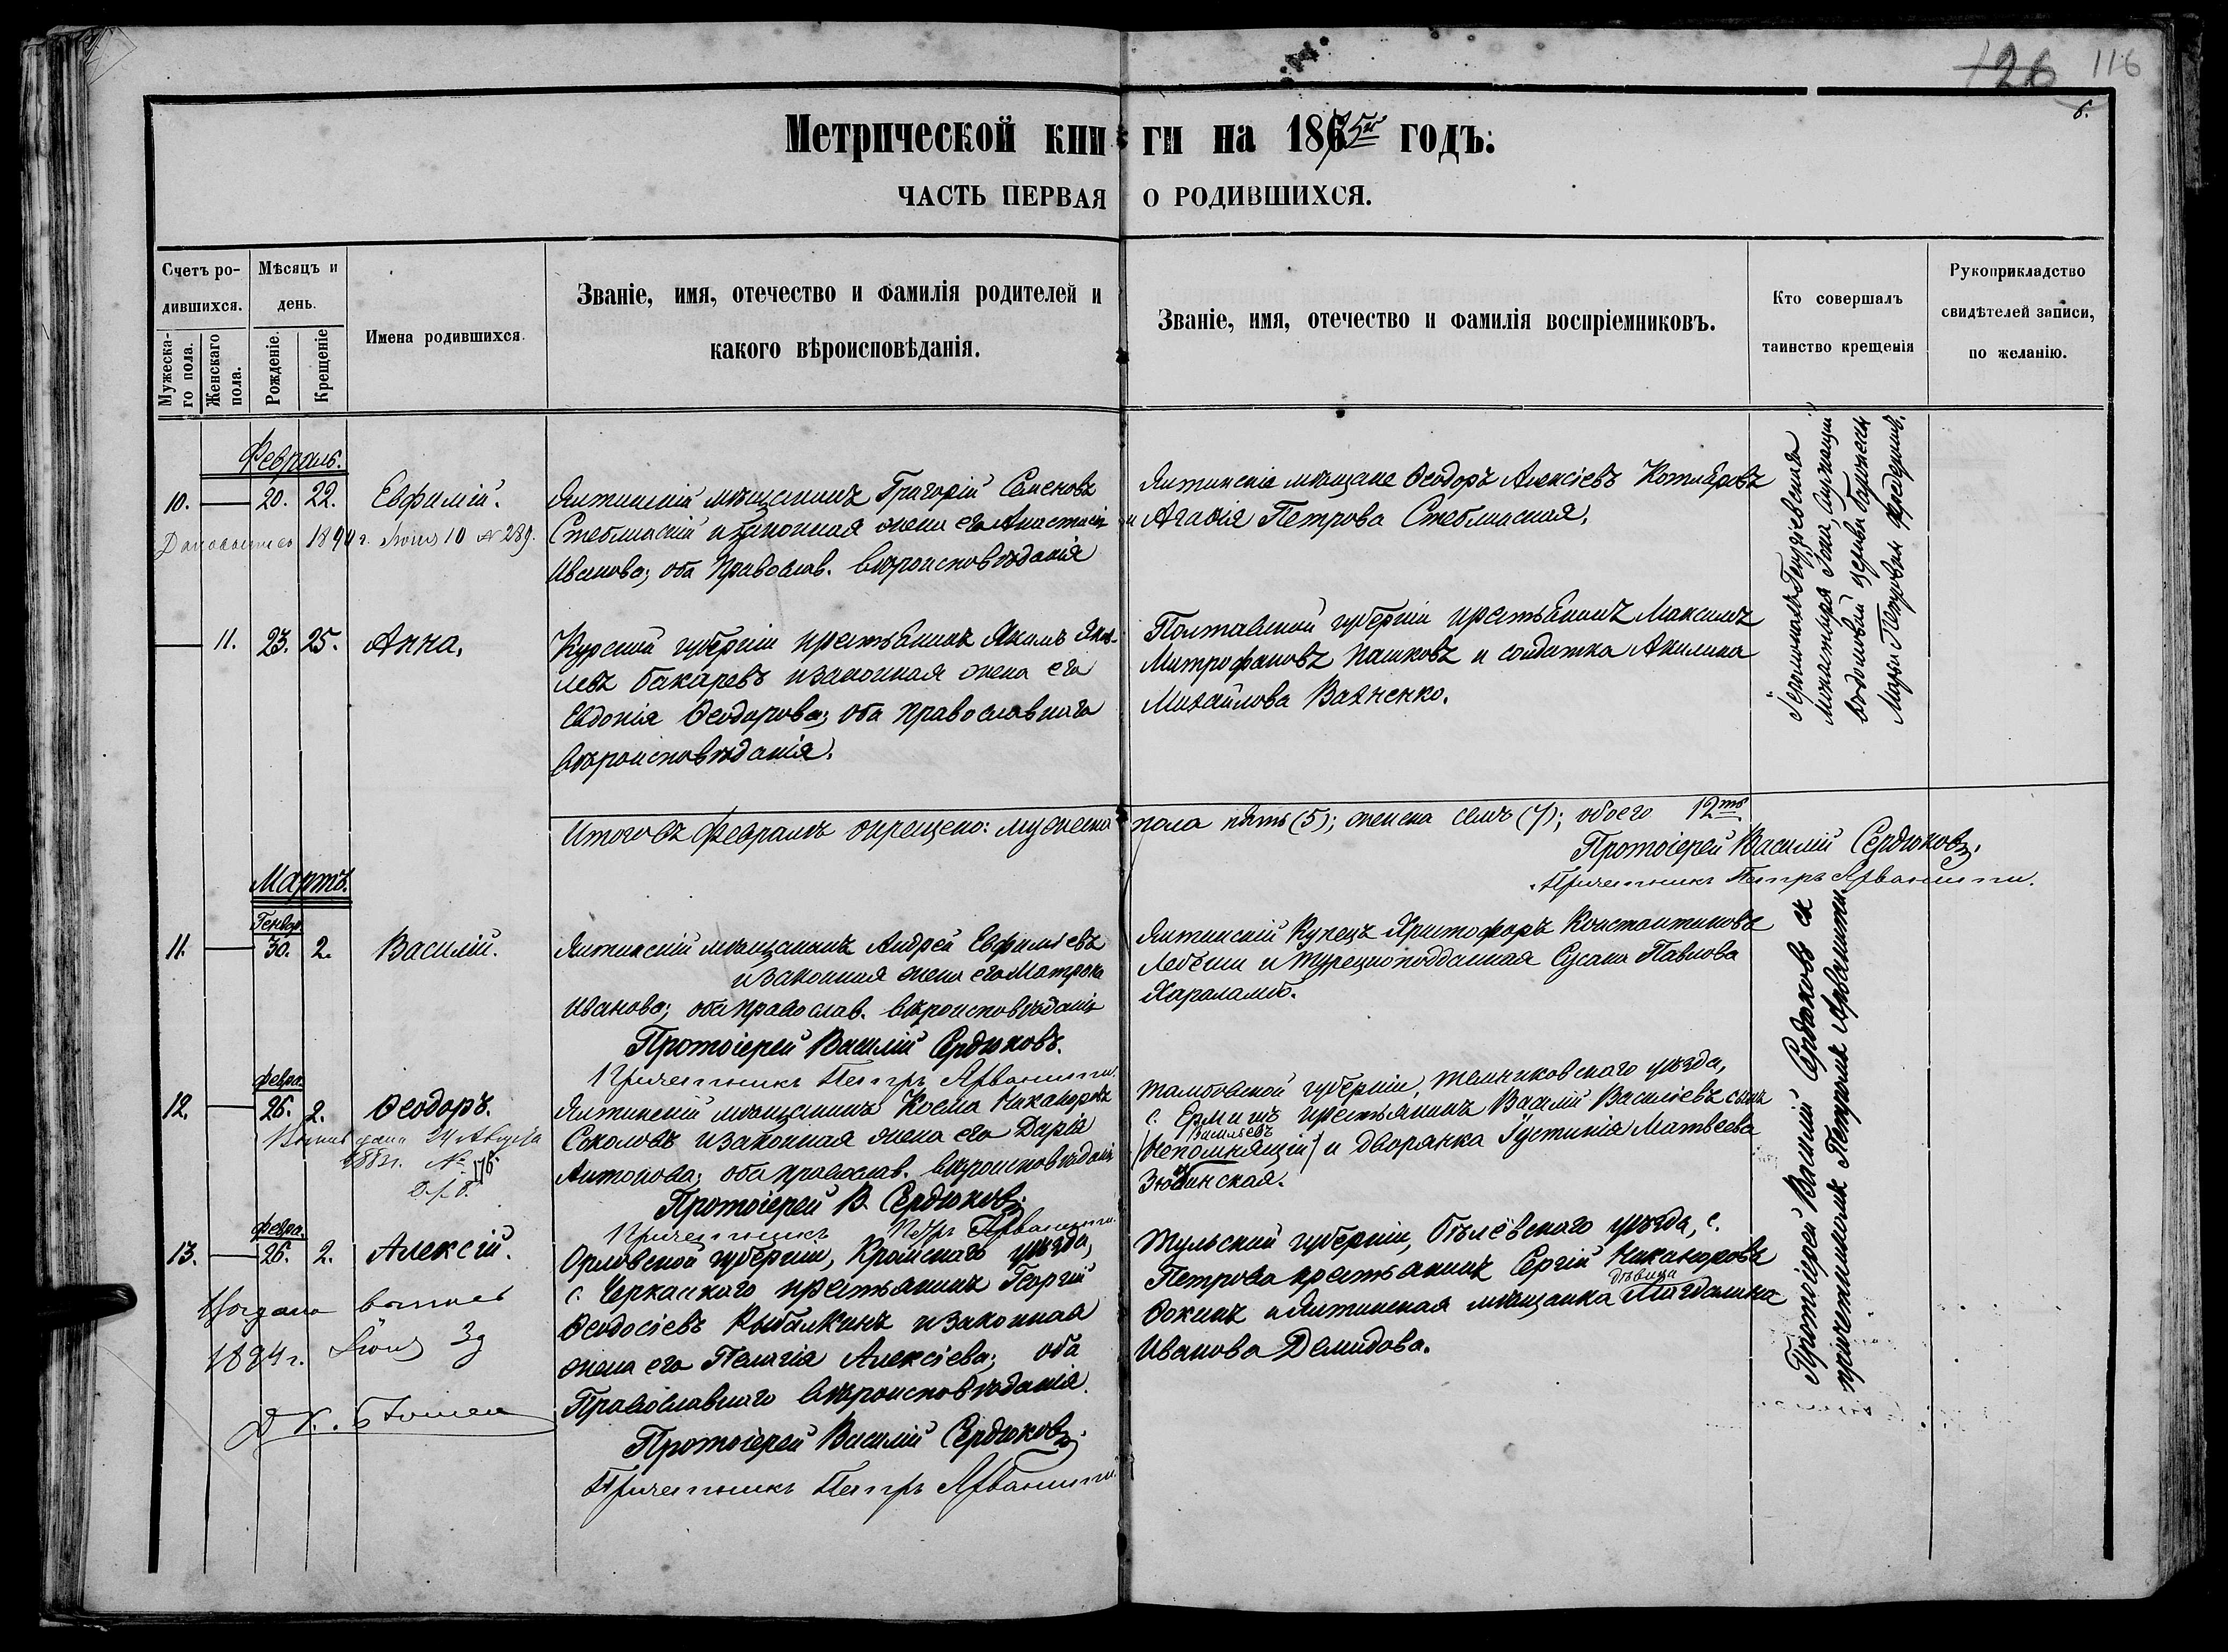 126 116
6.
Метрической книги на 1875й годъ:
ЧАСТЬ ПЕРВАЯ О РОДИВШИХСЯ.
Счетъ родившихся.
Мужескаго пола.
Женскаго пола.
Мѣсяцъ и день.
Рожденіе.
Крещеніе
Имена родившихся.
Званіе, имя, отечество и фамилія родителей и
какого вѣроисповѣданія.
Званіе, имя, отечество и фамилія воспріемниковъ.
Кто совершалъ
таинство крещенія
Рукоприкладство
свидѣтелей записи,
по желанію.
Февраль.
10. 20. 22. Евфимій.
1890 г. Іюня 10 № 289.
Ялтинскій мѣщанинъ Григорій Семеновъ
Стеблинскій и законная жена его Анастасія
Иванова; оба православ. вѣроисповѣданія
Ялтинскіе мѣщане Ѳеодоръ Алексіевъ Котляровъ
и Агафія Петрова Стеблинская.
11. 23. 25. Анна.
Курской губерніи крестьянинъ Якимъ Яков-
левъ Бакаревъ и законная жена его
Евдокія Ѳеодорова; оба православнаго
вѣроисповѣданія.
Полтавской губерніи крестьянинъ Максимъ
Митрофановъ Пашковъ и солдатка Акилина
Михайлова Вахненко.
Іеромонахъ Георгіевскаго
Монастыря
Итого въ Февралѣ окрещено: мужеска пола пять (5); женска семь (7); обоего 12ть
Протоіерей Василій Сердюковъ.
Причетникъ Петръ Арванити.
Мартъ.
Генвар.
11. 30. 2. Василій.
Ялтинскій мѣщанинъ Андрей Евфиміевъ
и законная жена его Матрона
Иванова; оба православ. вѣроисповѣданія
Протоіерей Василій Сердюковъ.
Причетникъ Петръ Арванити.
Ялтинскій Купецъ Христофоръ Константиновъ
и турецкоподданная Сусана Павлова
Хараламб.
Февра.
12. 26. 2. Ѳеодоръ.
24 Августа
1883 г. № 176.
Ялтинскій мѣщанинъ Косма Никаноровъ
Соколовъ и законная жена его Дарія
Антонова; оба православ. вѣроисповѣданія
Протоіерей В. Сердюковъ.
Причетникъ Петръ Арванити.
Тамбовской губерніи, Темниковскаго уѣзда,
с. Ермишъ крестьянинъ Василій Василіевъ сынъ
Васильевъ
(Непомнящій) и дворянка Іустинія Матвѣева
Февра.
13. 26. 2. Алексій.
1894 г. Іюня 3д
Орловской губерніи, Кромскаго уѣзда,
с. Черкасского крестьянинъ Георгій
Ѳеодосіевъ Рыбалкинъ и законная
жена его Пелагія Алексіева; оба
Православнаго вѣроисповѣданія.
Протоіерей Василій Сердюковъ.
Причетникъ Петръ Арванити.
Тульской губерніи, Бѣлёвскаго уѣзда, с.
Петрова крестьянинъ Сергій Никаноровъ
Фокинъ и Ялтинская мѣщанка дѣвица Магдалина
Иванова Демидова.
Протоіерей Василій Сердюковъ съ
причетникомъ Петромъ Арванити